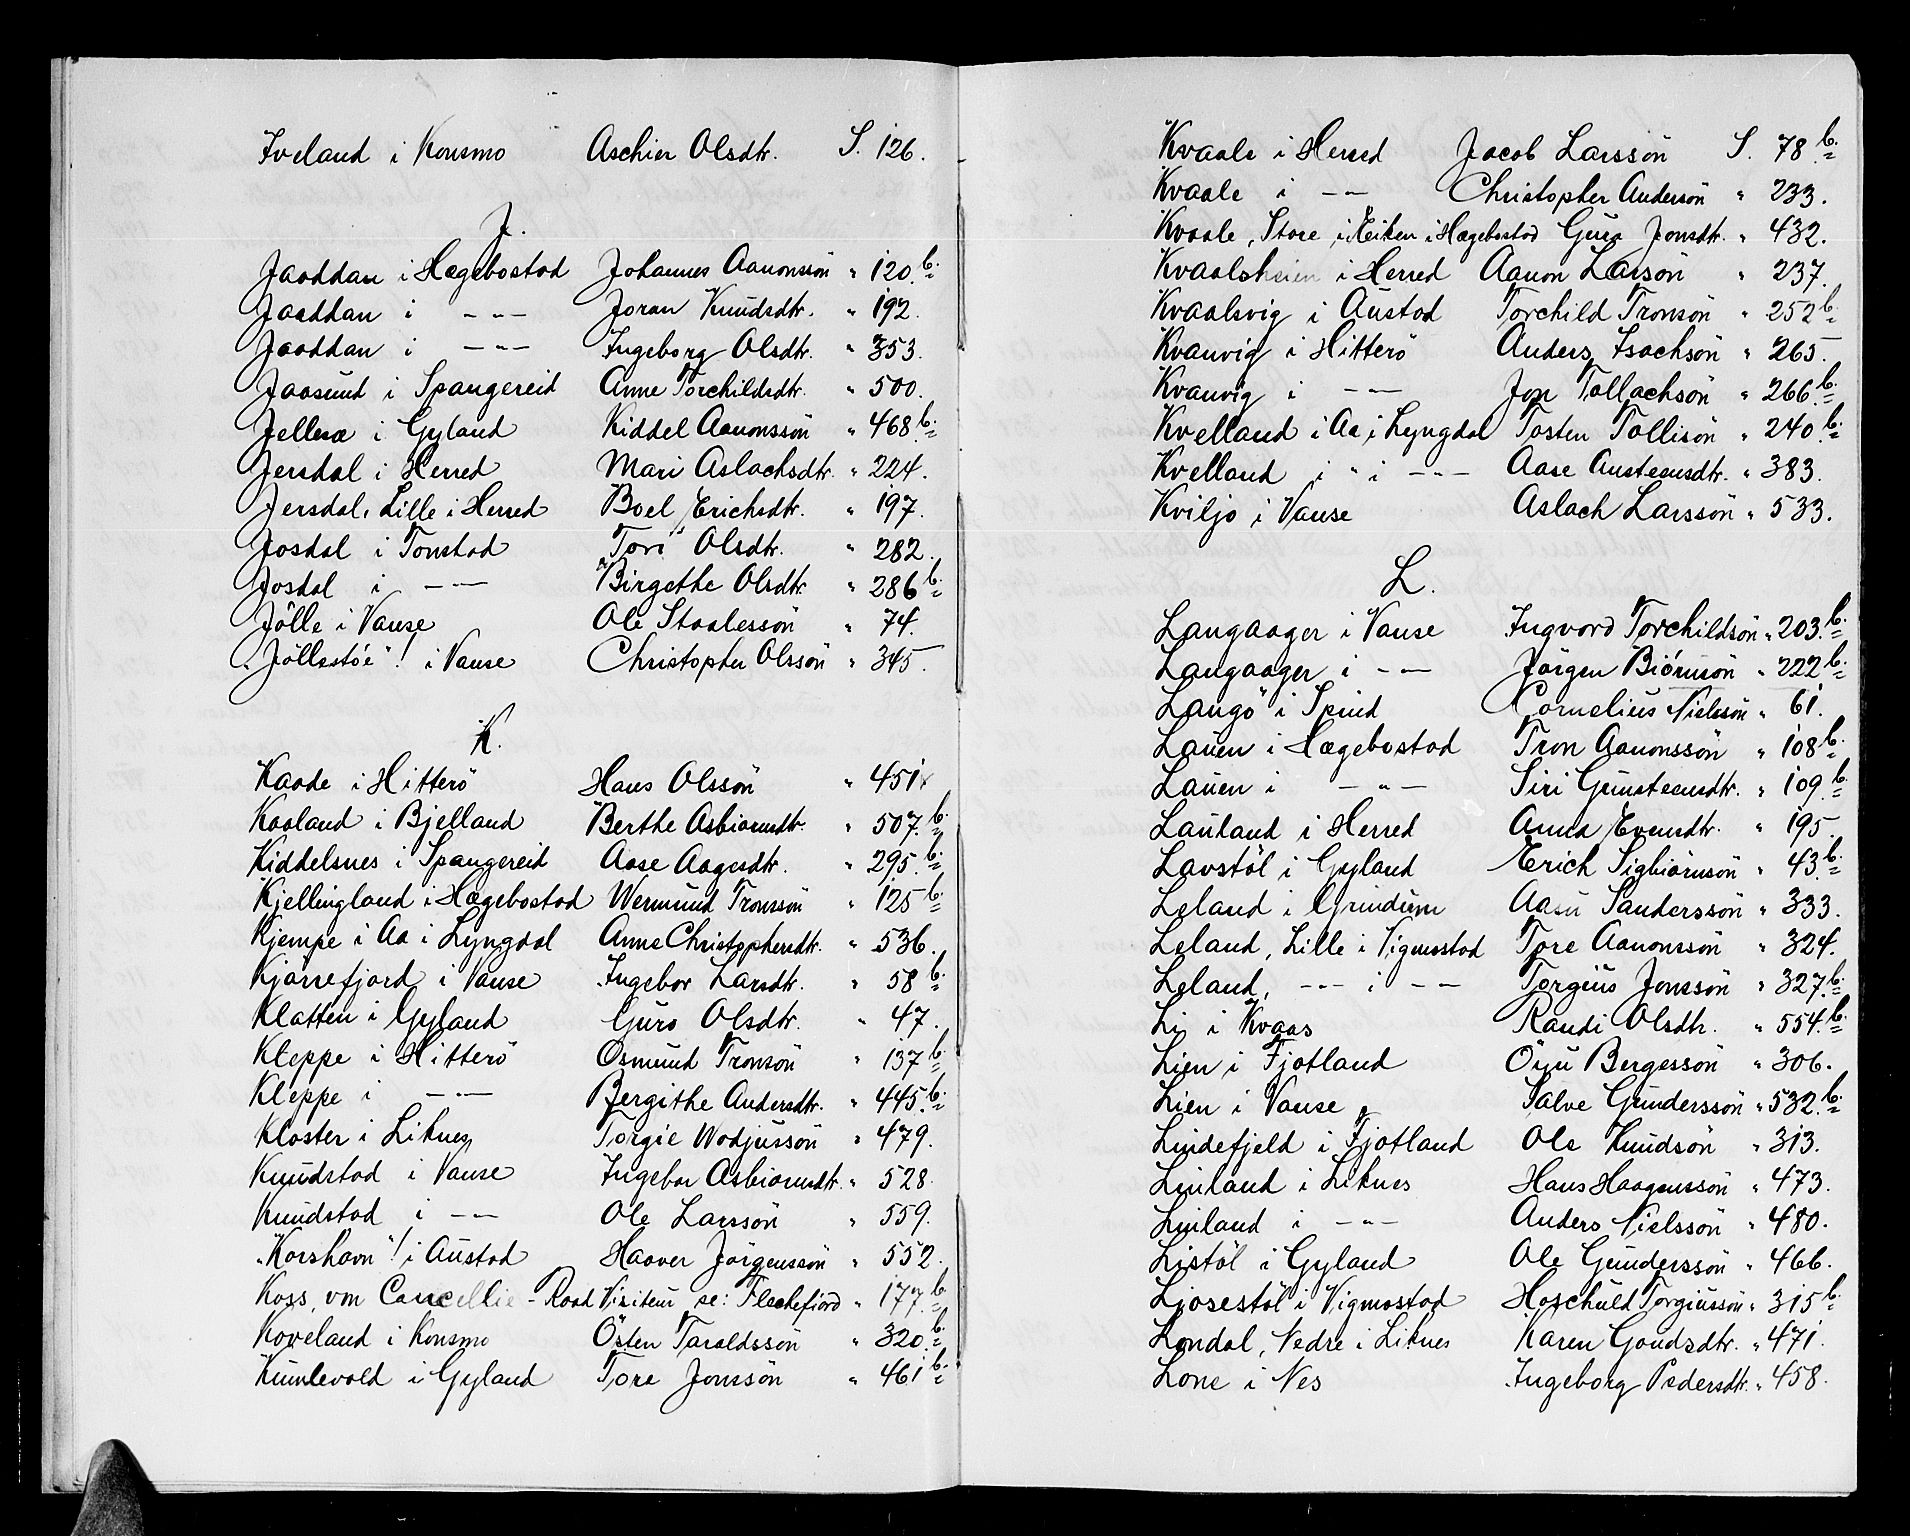 Iveland i Konsmo Aschier Olsdtr. S. 126.
J.
Jaaddan i Hægebostad Johannes Aanonssön " 120.b.
Jaaddan i -"- Joran Knudsdtr. " 192.
Jaaddan i -"- Ingeborg Olsdtr. " 353.
Jaasund i Spangereid Anne Torchildsdtr. " 500.
Jelleræ i Gyland Kiddel Aanonssön " 468.b.
Jersdal i Herred Mari Aslachsdtr. " 224.
Jersdal, Lille i Herred Boel Erichsdtr. " 197.
Josdal i Tonstad Tori Olsdtr. " 282.
Josdal i -"- Birgethe Olsdtr. " 286.b.
Jölle i Vanse Ole Staalessön " 74.
"Jöllestöe"! i Vanse Christopher Olssön " 345.
K.
Kaade i Hitterö Hans Olssön " 451.
Kaaland i Bjelland Berthe Asbiornsdtr. " 507.b.
Kiddelsnes i Spangereid Aase Aagesdtr. " 295.b.
Kjellingland i Hægebostad Wermund Tronssön " 125.b.
Kjempe i Aa i Lyngdal Anne Christophersdtr. " 536.
Kjørrefjord i Vanse Ingebor Larsdtr. " 58.b.
Klatten i Gyland Guro Olsdtr. " 47.
Kleppe i Hitterö Osmund Tronsön " 137.b.
Kleppe i -"- Bergithe Andersdtr. " 445.b.
Kloster i Liknes Torgie Wodjussön " 479.
Knudstad i Vanse Ingebor Asbiornsdtr. " 528.
Knudstad i -"- Ole Larssön " 559.
"Korshavn"! i Austad Haaver Jörgenssön " 552.
Koss, von Cancellie-Raad Visiteur, se: Flechefiord " 177.b.
Koveland i Konsmo Østen Taraldssön " 320.b.
Kumlevold i Gyland Tore Jonssön " 461.b.
Kvaale i Herred Jacob Larssön S. 78.b.
Kvaale i -"- Christopher Andersön " 233.
Kvaale, Store i Eiken i Hægebostad Guro Jonsdtr. " 432.
Kvaalsheien i Herred Aanon Larsön " 237.
Kvaalsvig i Austad Torchild Tronsön " 252.b.
Kvanvig i Hitterö Anders Isachsön " 265.
Kvanvig i -"- Jon Tollachsön " 266.b.
Kvelland i Aa i Lyngdal Tosten Tollisön " 240.b.
Kvelland i " i -"- Aase Austeensdtr. " 383.
Kviljo i Vanse Aslach Larssön " 533.
L.
Langaager i Vanse Ingvord Torchildsön " 203.b.
Langaager i -"- Jörgen Biörnsön " 222.b.
Langö i Spind Cornelius Nielssön " 61.
Lauen i Hægebostad Tron Aanonssön " 108.b.
Lauen i -"- Siri Gunsteensdtr. " 109.b.
Lauland i Herred Anna Evensdtr. " 195.
Lavstöl i Gyland Erich Sigbiörnsön " 43.b.
Leland i Grindum Aasu Sanderssön " 333.
Leland, Lille i Vigmostad Tore Aanonssön " 324.
Leland, -"- i -"- Torgius Jonssön " 327.b.
Li i Kvaas Randi Olsdtr. " 554.b.
Lien i Fjotland Öyu Bergessön " 306.
Lien i Vanse Salve Gunderssön " 532.b.
Lindefjeld i Fjotland Ole Knudsön " 313.
Linland i Liknes Hans Haagenssön " 473.
Linland i -"- Anders Nielssön " 480.
Listöl i Gyland Ole Gunderssön " 466.
Ljosestöl i Vigmostad Hoschuld Torgiussön " 315.b.
Londal, Nedre i Liknes Karen Goudsdtr. " 471.
Lone i Nes Ingeborg Pedersdtr. " 458.